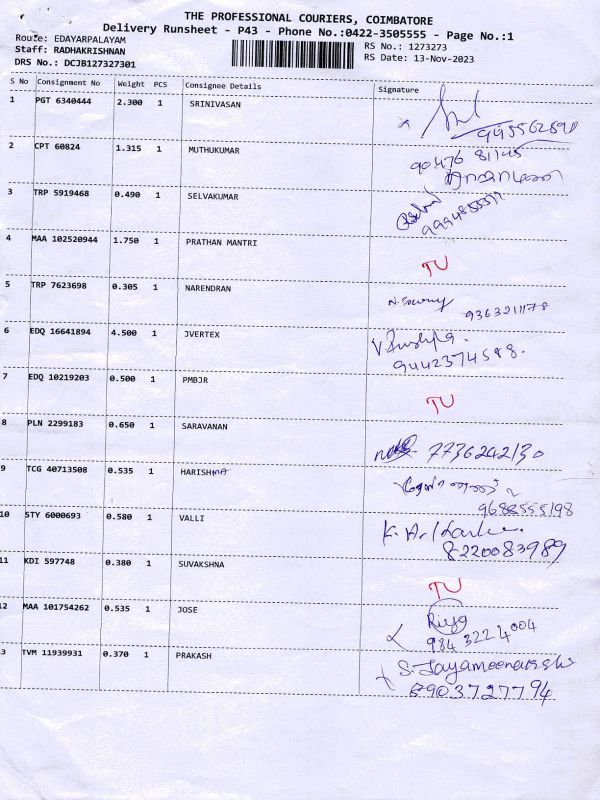 THE PROFESSIONAL COURIERS, COIMBATORE
Delivery Runsheet - P43 - Phone No.:0422-3505555 - Page No.:1
Route: EDAYARPALAYAM
RS No.: 1273273
Staff: RADHAKRISHNAN
RS Date: 13-Nov-2023
DRS No.: DCJB127327301
S No Consignment No Weight PCS Consignee Details Signature
1 PGT 6340444 2.300 1 SRINIVASAN
2 CPT 60824 1.315 1 MUTHUKUMAR
90476 81145
3 TRP 5919468 0.490 1 SELVAKUMAR
4 MAA 102520944 1.750 1 PRATHAN MANTRI
TU
5 TRP 7623698 0.305 1 NARENDRAN
9363211178
6 EDQ 16641894 4.500 1 JVERTEX
9442374598.
7 EDQ 10219203 0.500 1 PMBJR
TU
8 PLN 2299183 0.650 1 SARAVANAN
7736242130
9 TCG 40713508 0.535 1 HARISHMA
9688555198
10 STY 6000693 0.580 1 VALLI
8220083989
11 KDI 597748 0.380 1 SUVAKSHNA
TU
12 MAA 101754262 0.535 1 JOSE
Riya
9843224004
3 TVM 11939931 0.370 1 PRAKASH
S. Jayameenakshi
8903727794